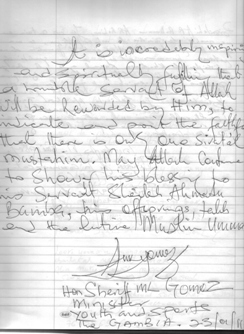 It is incredibly inspiring
and spiritually fulfilling that
a humble servant of Allah
will be rewarded by Him, to
indicate and
that there is only one siratal
mustahim. May Allah continue
to shower his blessing to
his servant Sheikh Ahmadu
Bamba, his offspring,
and the entire Muslim Umma
Hon Sheriff ML Gomez
Minister
Youth and Sports
The GAMBIA